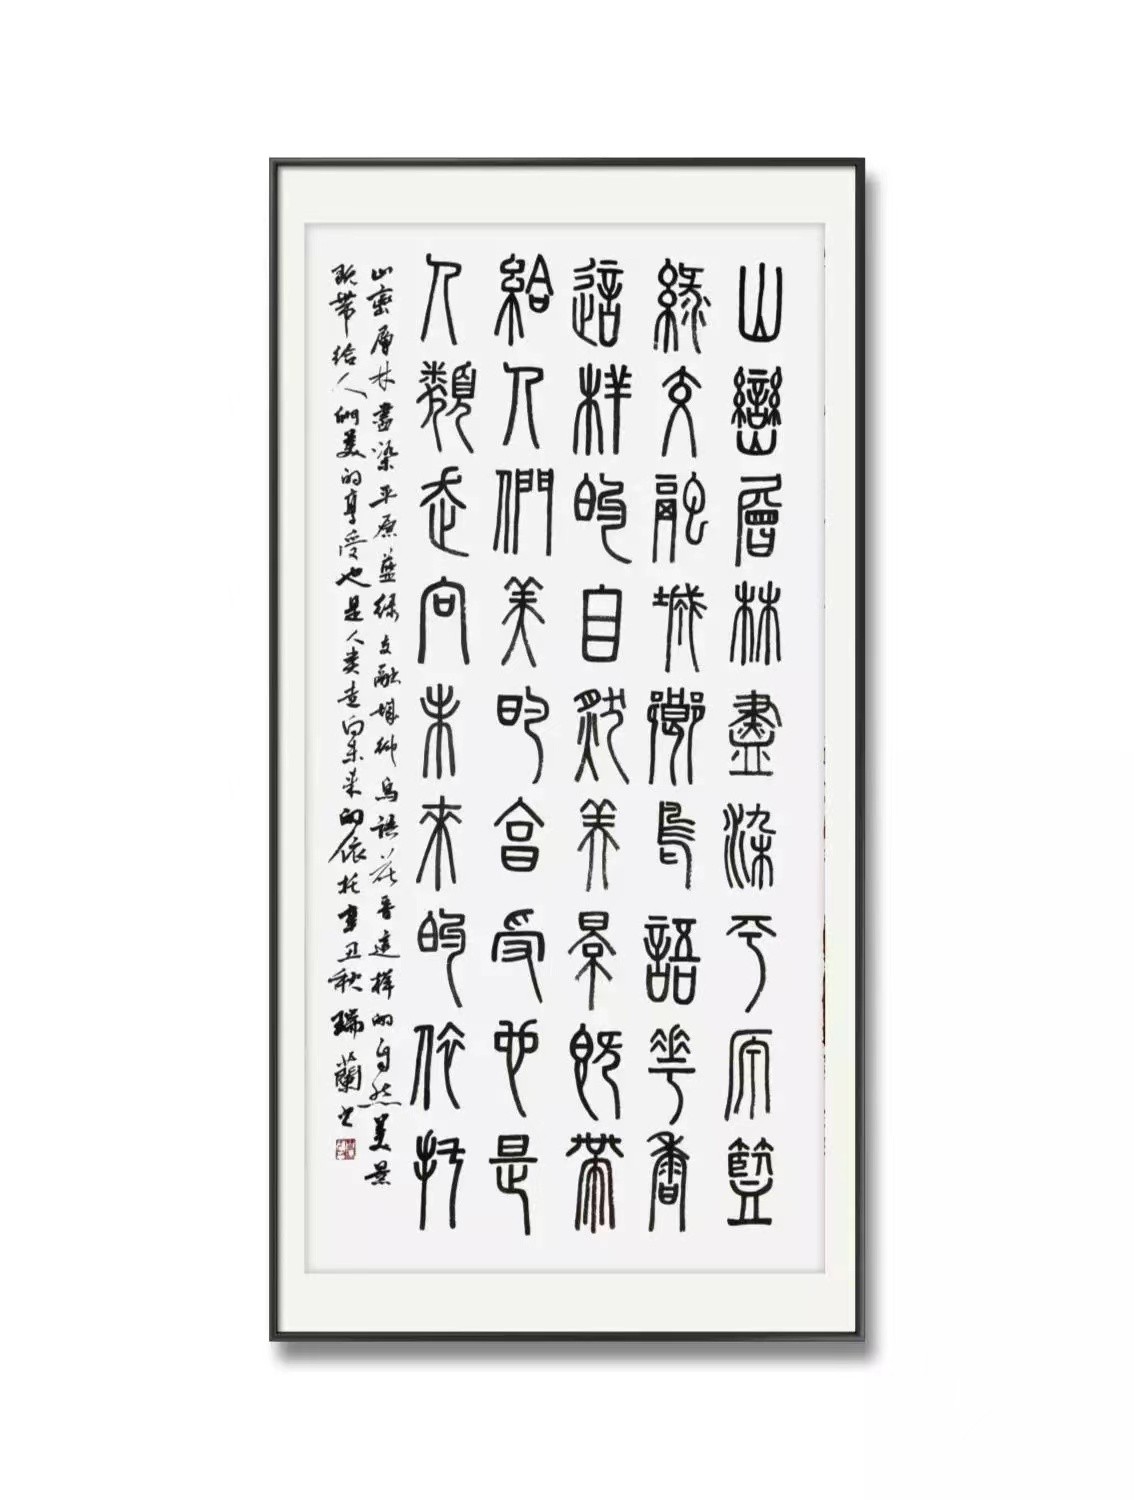 山巒層林盡染平原藍
綠交融城鄉鳥語華香
這样的自然美景既帶
給人們美的享受也是
人類走向未來的依托
山巒層林盡染平原蓝綠交融城鄉鳥語花香這樣的自然美景
既帶给人們美的享受也是人类走向未来的依托辛丑秋瑞蘭书